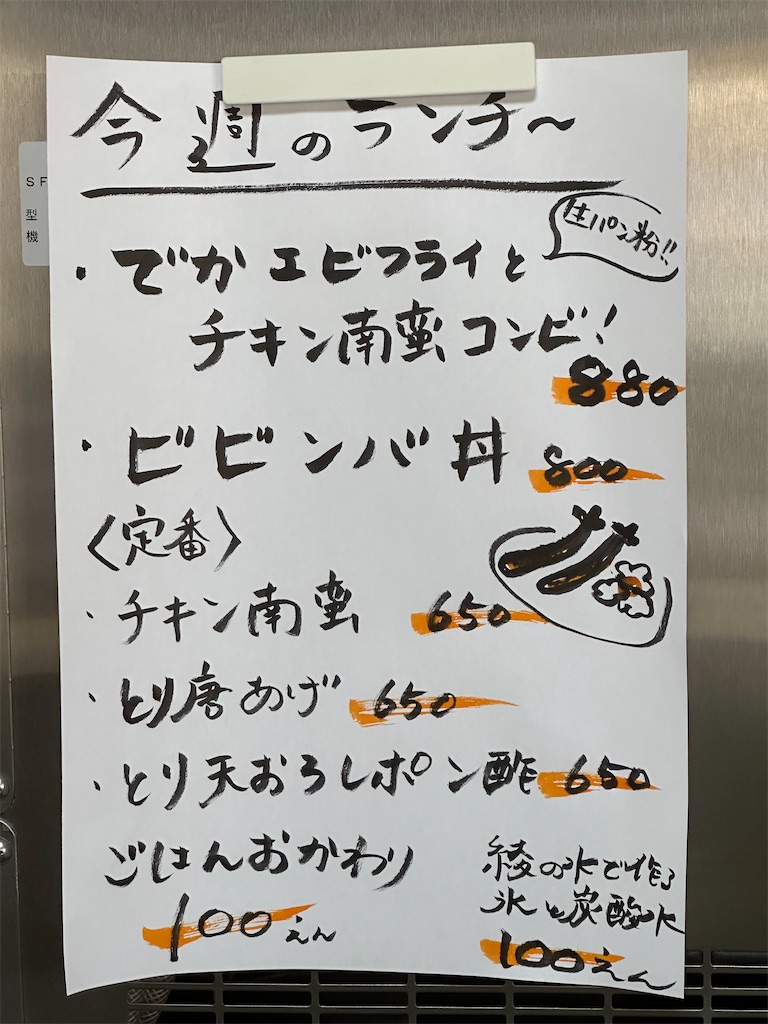 今週のランチ〜
生パン粉!!
・でかエビフライと
チキン南蛮コンビ!
880
・ビビンバ丼 800
〈定番〉
・チキン南蛮 650
・とり唐あげ 650
・とり天おろしポン酢 650
ごはんおかわり
100えん
綾の水で作る
氷と炭酸水
100えん
SF
型
機